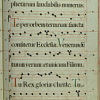 phetarum laudabilis numerus.
Te per orbem terrarum sancta
confitetur Ecclesia. Venerandum
tuum verum et unicum Filium.
Tu Rex gloriæ Christe. Tu